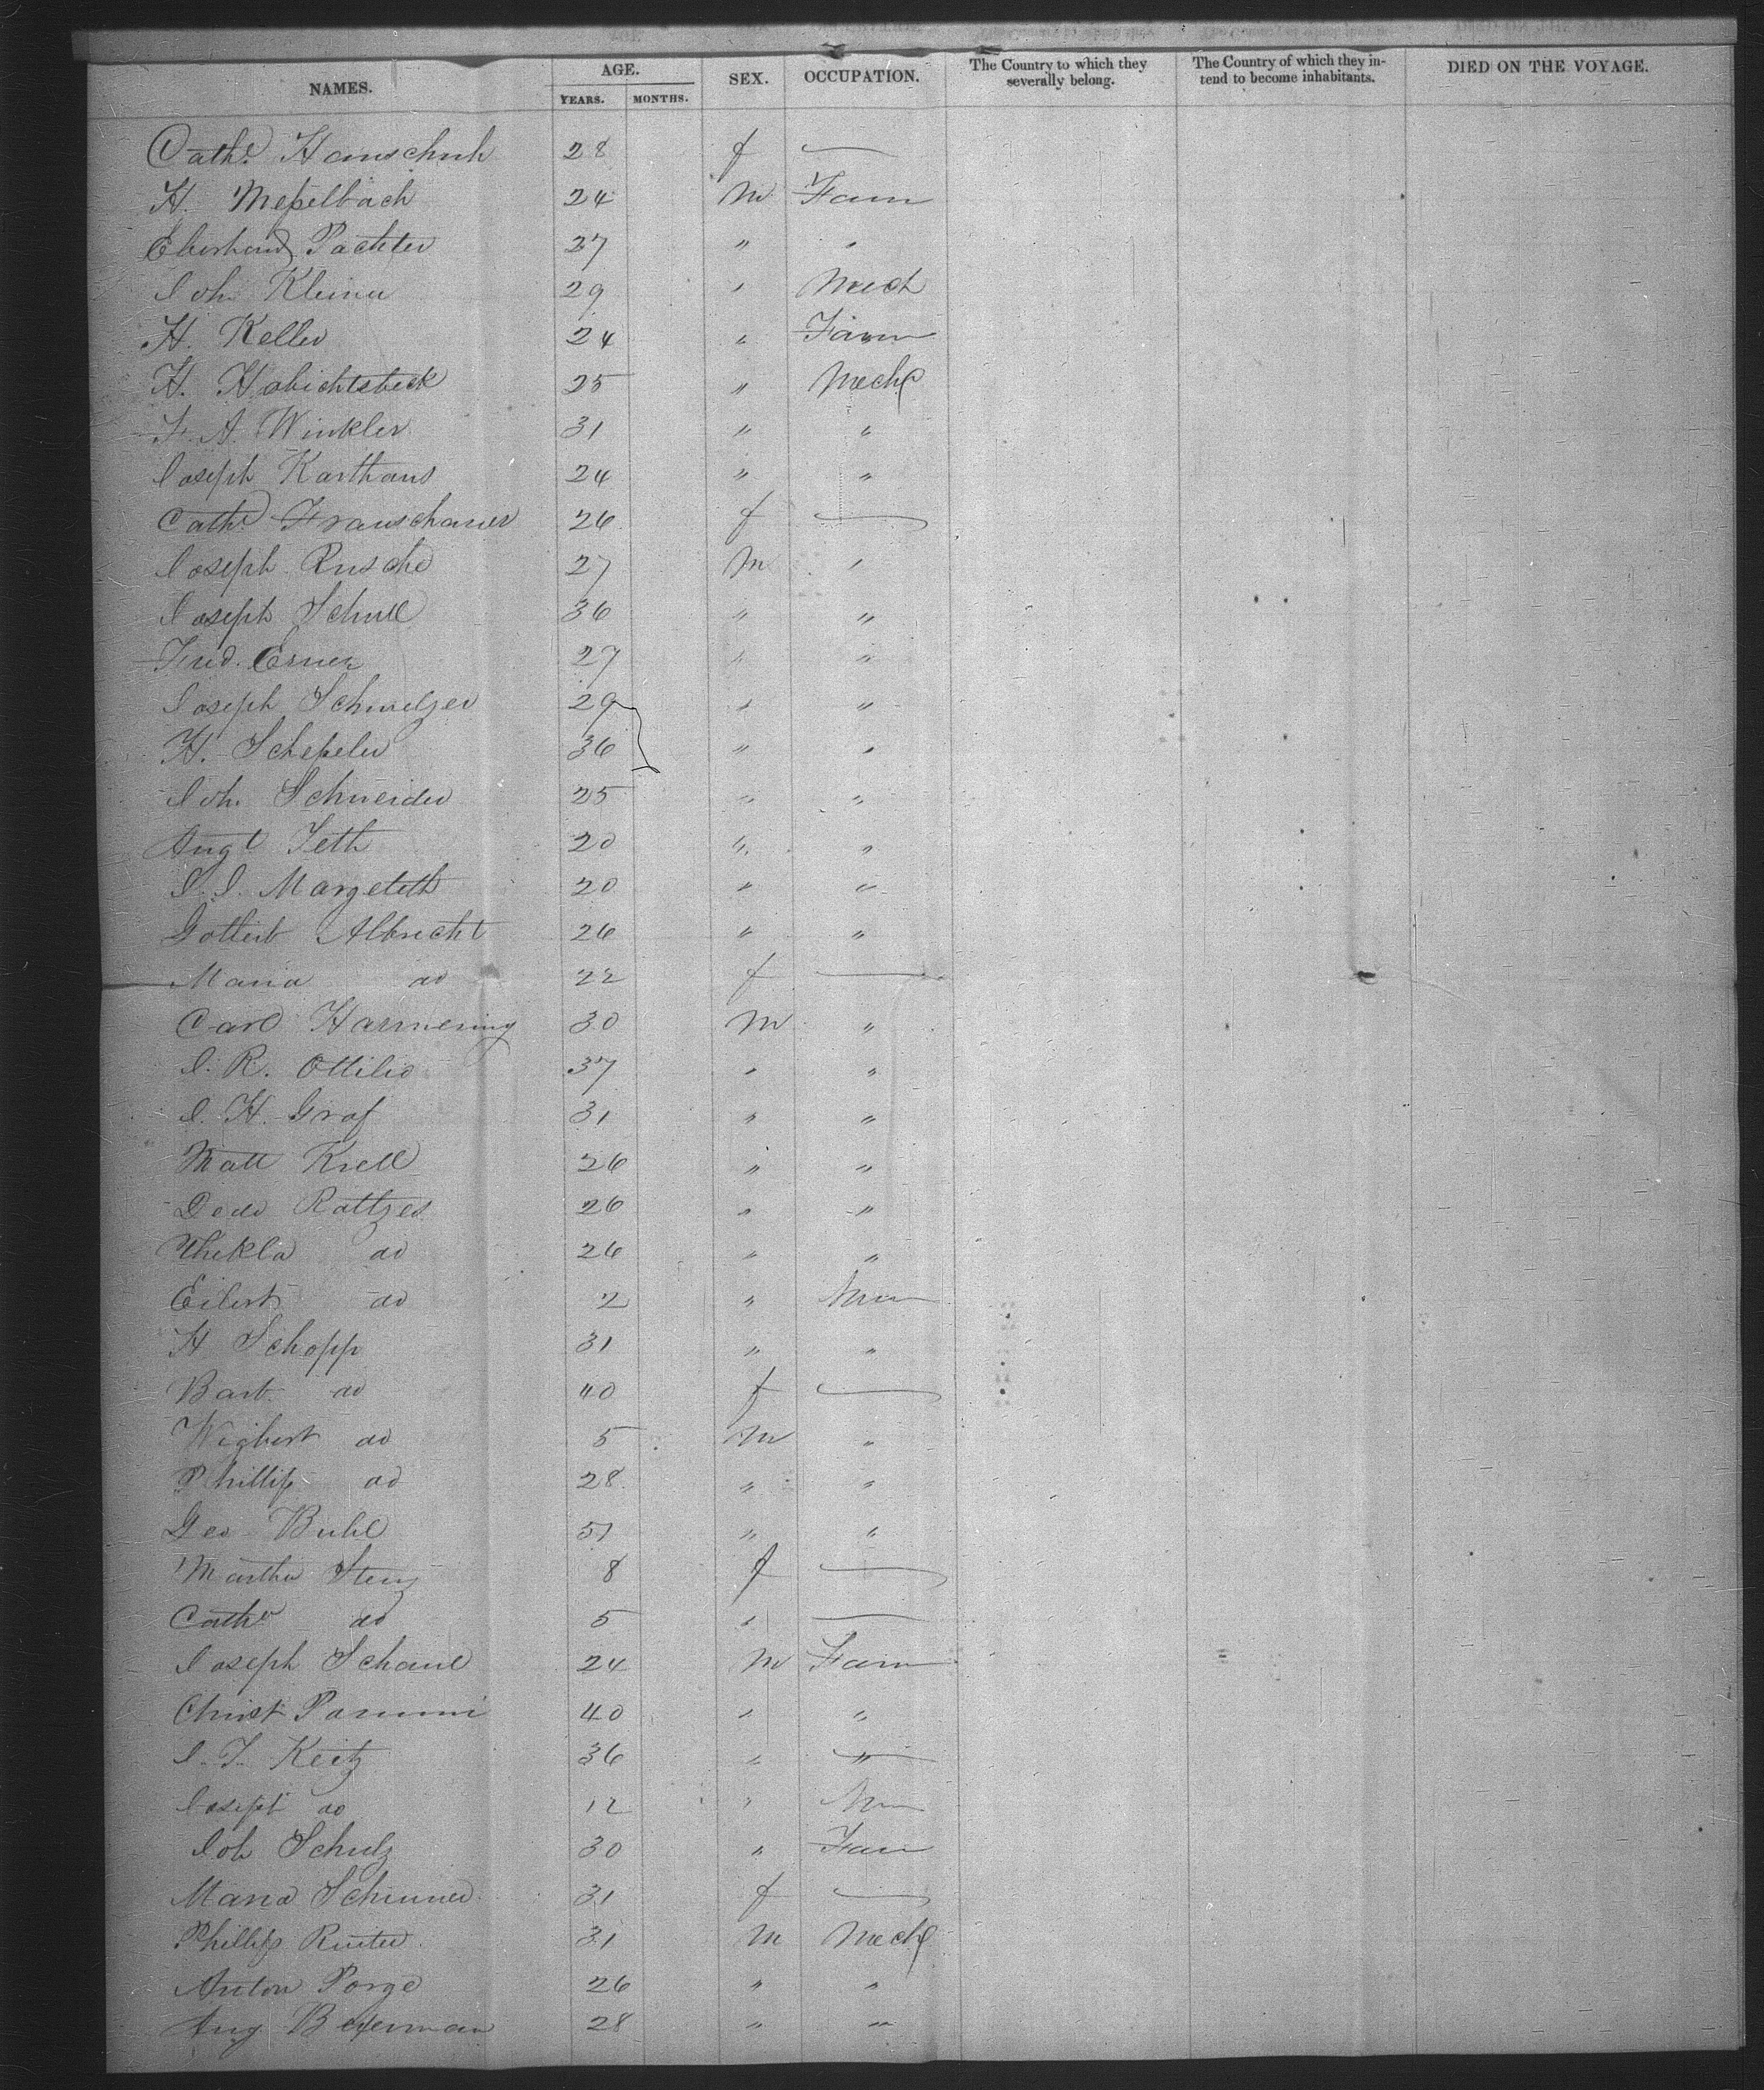 NAMES. AGE. SEX. OCCUPATION. The Country to which they severally belong. The Country of which they intend to become inhabitants. DIED ON THE VOYAGE.
YEARS. MONTHS.
Cath. Hanschuh 28 f —
H. Messelbach 24 M Farm
Eberhard Pachter 27 " "
Joh. Kleiner 29 " Mech
H. Keller 24 " Farm
H. Habichtsbeck 25 " Mech
F. A. Winkler 31 " "
Joseph Karthaus 24 " "
Cath. Franschauer 26 f —
Joseph Rusche 27 M "
Joseph Schull 36 " "
Fred. Esner 27 " "
Joseph Schmelzer 29 " "
H. Schepeler 36 " "
Joh. Schneider 25 " "
Augt Feth 20 " "
J. J. Margeleth 20 " "
Gotlieb Albrecht 26 " "
Maria do 22 f —
Carl Harmening 30 M "
J. R. Ottilie 37 " "
J. H. Graf 31 " "
Matt Krell 26 " "
Dedo Rattzes 26 " "
Thekla do 26 " "
Eilert do 2 "
H Schopp 31 " "
Barb. do 40 f —
Wigbert do 5 M "
Phillip do 28 " "
Geo Buhl 51 " "
Martha Stenz 8 f —
Cath do 5 " —
Joseph Schaul 24 M Farm
Christ 40 " "
J. F. Keitz 36 " "
Joseph do 12 "
Joh Schulz 30 " Farm
Maria 31 f —
Phillip Reuter 31 M Mech
Anton Porge 26 " "
Aug Beyerman 28 " "